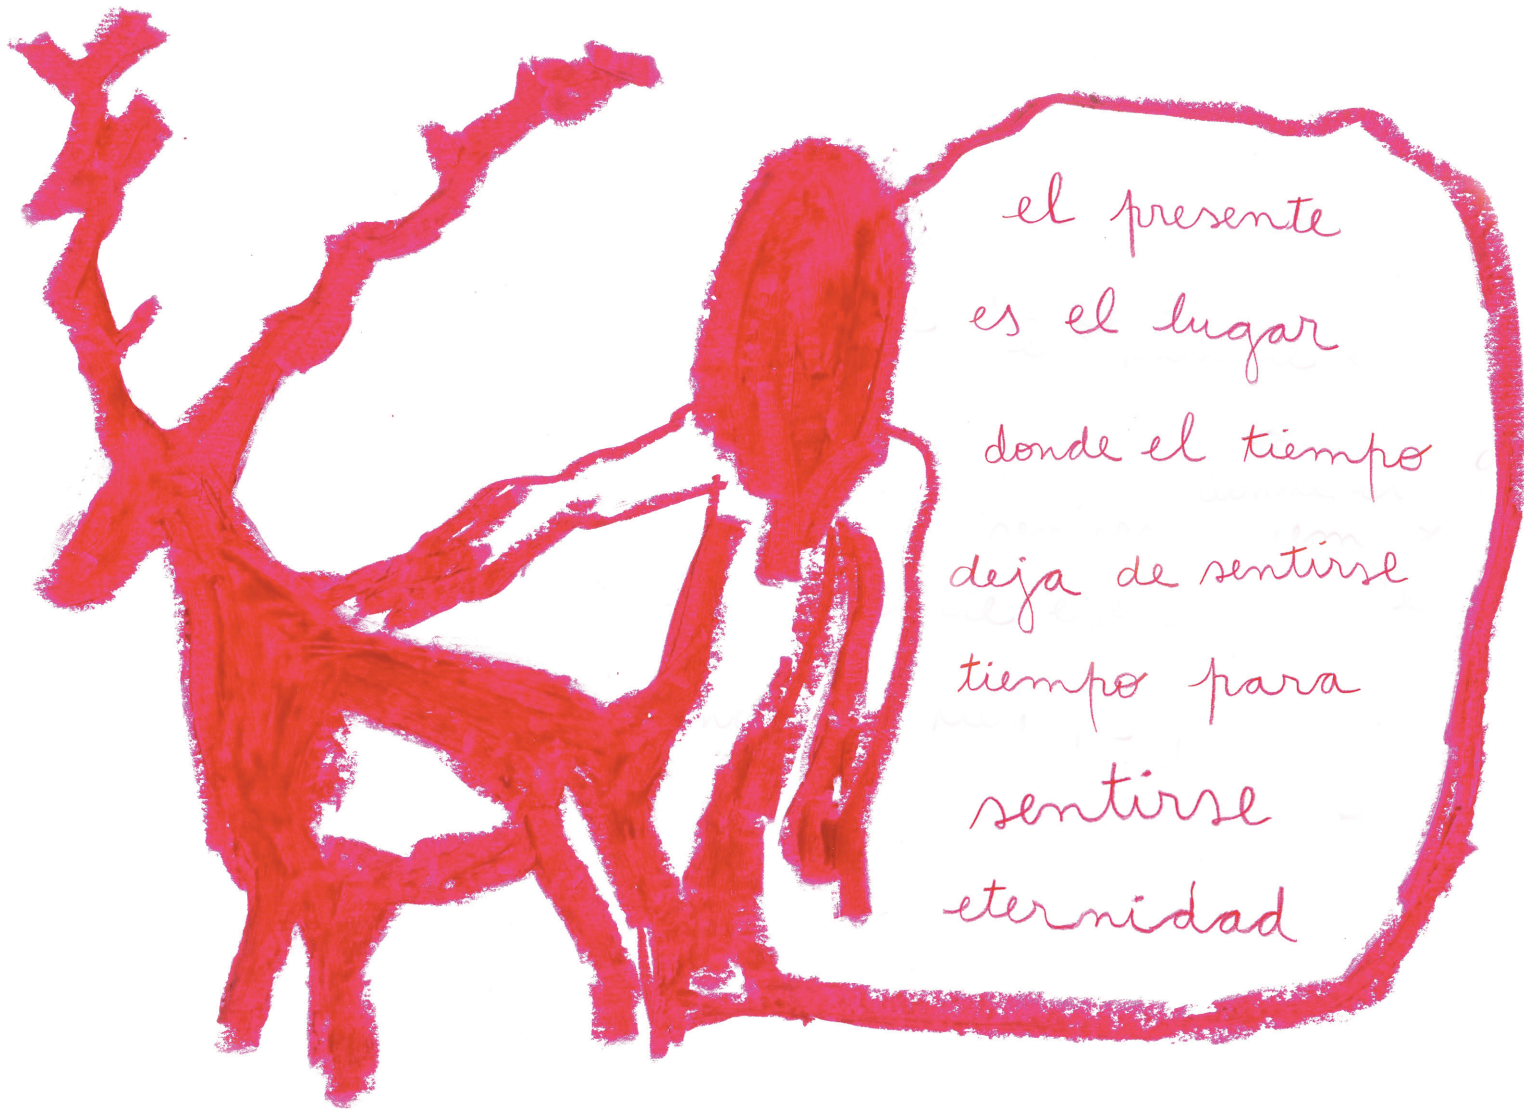 el presente
es el lugar
donde el tiempo
deja de sentirse
tiempo para
sentirse
eternidad